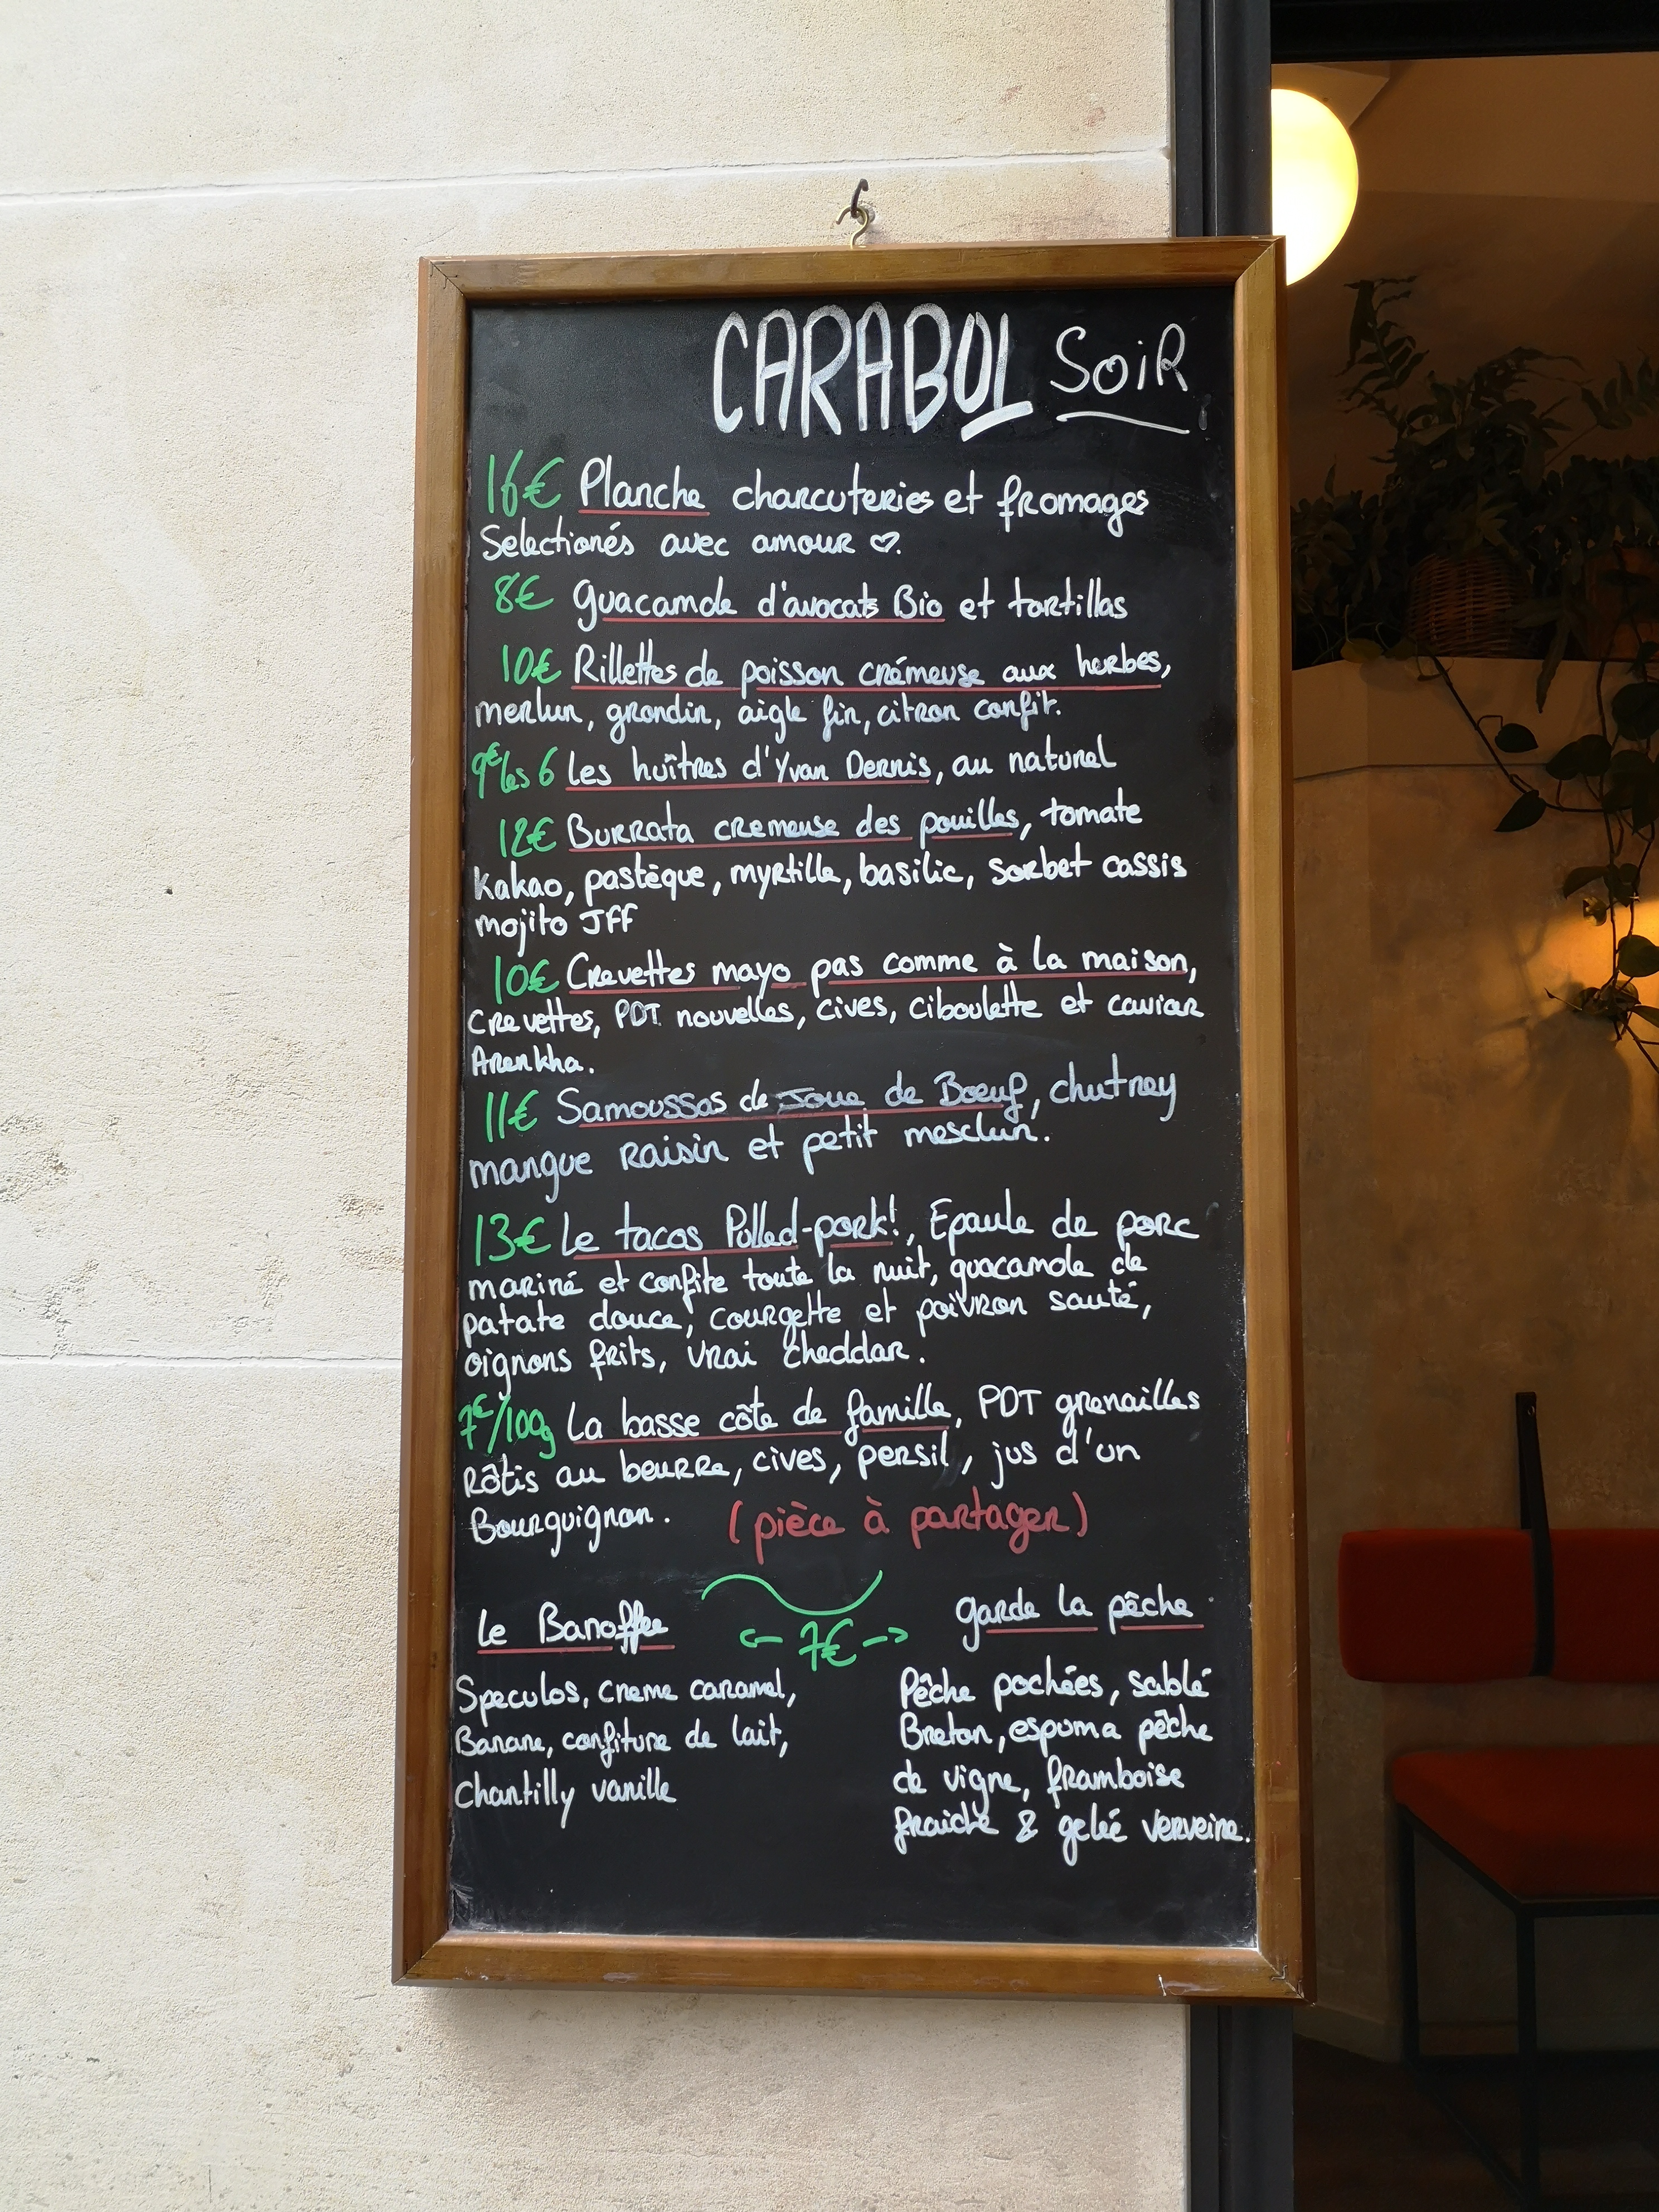 CARABOL SOiR
16€ Planche charcuteries et fromages
Selectionés avec amour ♡.
8€ guacamole d'avocats Bio et tortillas
10€ Rillettes de poisson crémeuse aux herbes,
merlun, grondin, aigle fin, citron confit.
9€ les 6 Les huîtres d'Yvan Dernis, au naturel
12€ Burrata cremeuse des pouilles, tomate
Kakao, pastèque, myrtille, basilic, sorbet cassis
mojito JFF
10€ Crevettes mayo pas comme à la maison,
Crevettes, PDT nouvelles, cives, ciboulette et caviar
Arenkha.
11€ Samoussas de Joue de Boeuf, chutney
mangue raisin et petit mesclun.
13€ Le tacos Pulled-pork!, Epaule de porc
mariné et confite toute la nuit, guacamole de
patate douce, courgette et poivron sauté,
oignons frits, vrai cheddar.
7€/100g La basse côte de famille, PDT grenailles
Rôtis au beurre, cives, persil, jus d'un
Bourguignon. (pièce à partager)
le Banoffee <- 7€ -> garde la pêche
Speculos, creme caramel,
Banane, confiture de lait,
Chantilly vanille
Pêche pochées, sablé
Breton, espuma pêche
de vigne, framboise
fraiche & gelée verveine.